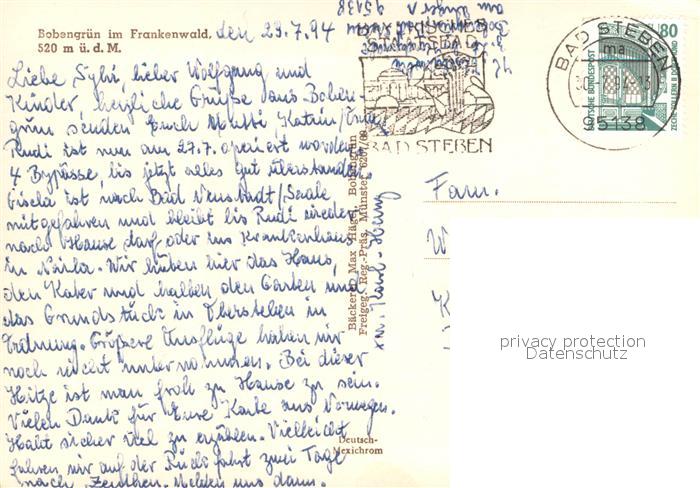 Bobengrün im Frankenwald, den 29.7.94
520 m ü. d. M.
Liebe Sybi, lieber Wolfgang und
Kinder, herzliche Grüße aus Boben-
grün senden Euch Mutti, Katrin/
Rudi ist nun am 27.7. operiert worden,
4 Bypässe, bis jetzt alles gut überstanden.
Gisela ist nach Bad Neustadt/Saale
mitgefahren und bleibt bis Rudi wieder
nach Hause darf oder ins Krankenhaus
in Naila. Wir hüten hier das Haus,
den Kater und halten den Garten und
das Grundstück in Obersteben in
Ordnung. Größere Ausflüge haben wir
noch nicht unternommen. Bei dieser
Hitze ist man froh zu Hause zu sein.
Vielen Dank für Eure Karte aus Norwegen.
Habt sicher viel zu erzählen. Vielleicht
fahren wir auf der Rückfahrt zwei Tage
nach Zeuthen. Melden uns dann.
u. Karl-Heinz
Bäckerei Max Hägel, Bobengrün
Freigeg. Reg.-Präs. Münster
Deutsch-
Mexichrom
95138
BAYERISCHES
STAATSBAD
BAD STEBEN
BAD STEBEN
ma
95138
80
DEUTSCHE BUNDESPOST
Fam.
W
K
privacy protection
Datenschutz